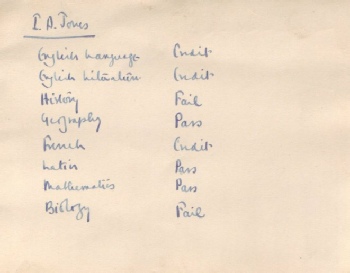 I. A. Jones
English Language Credit
English Literature Credit
History Fail
Geography Pass
French Credit
Latin Pass
Mathematics Pass
Biology Fail